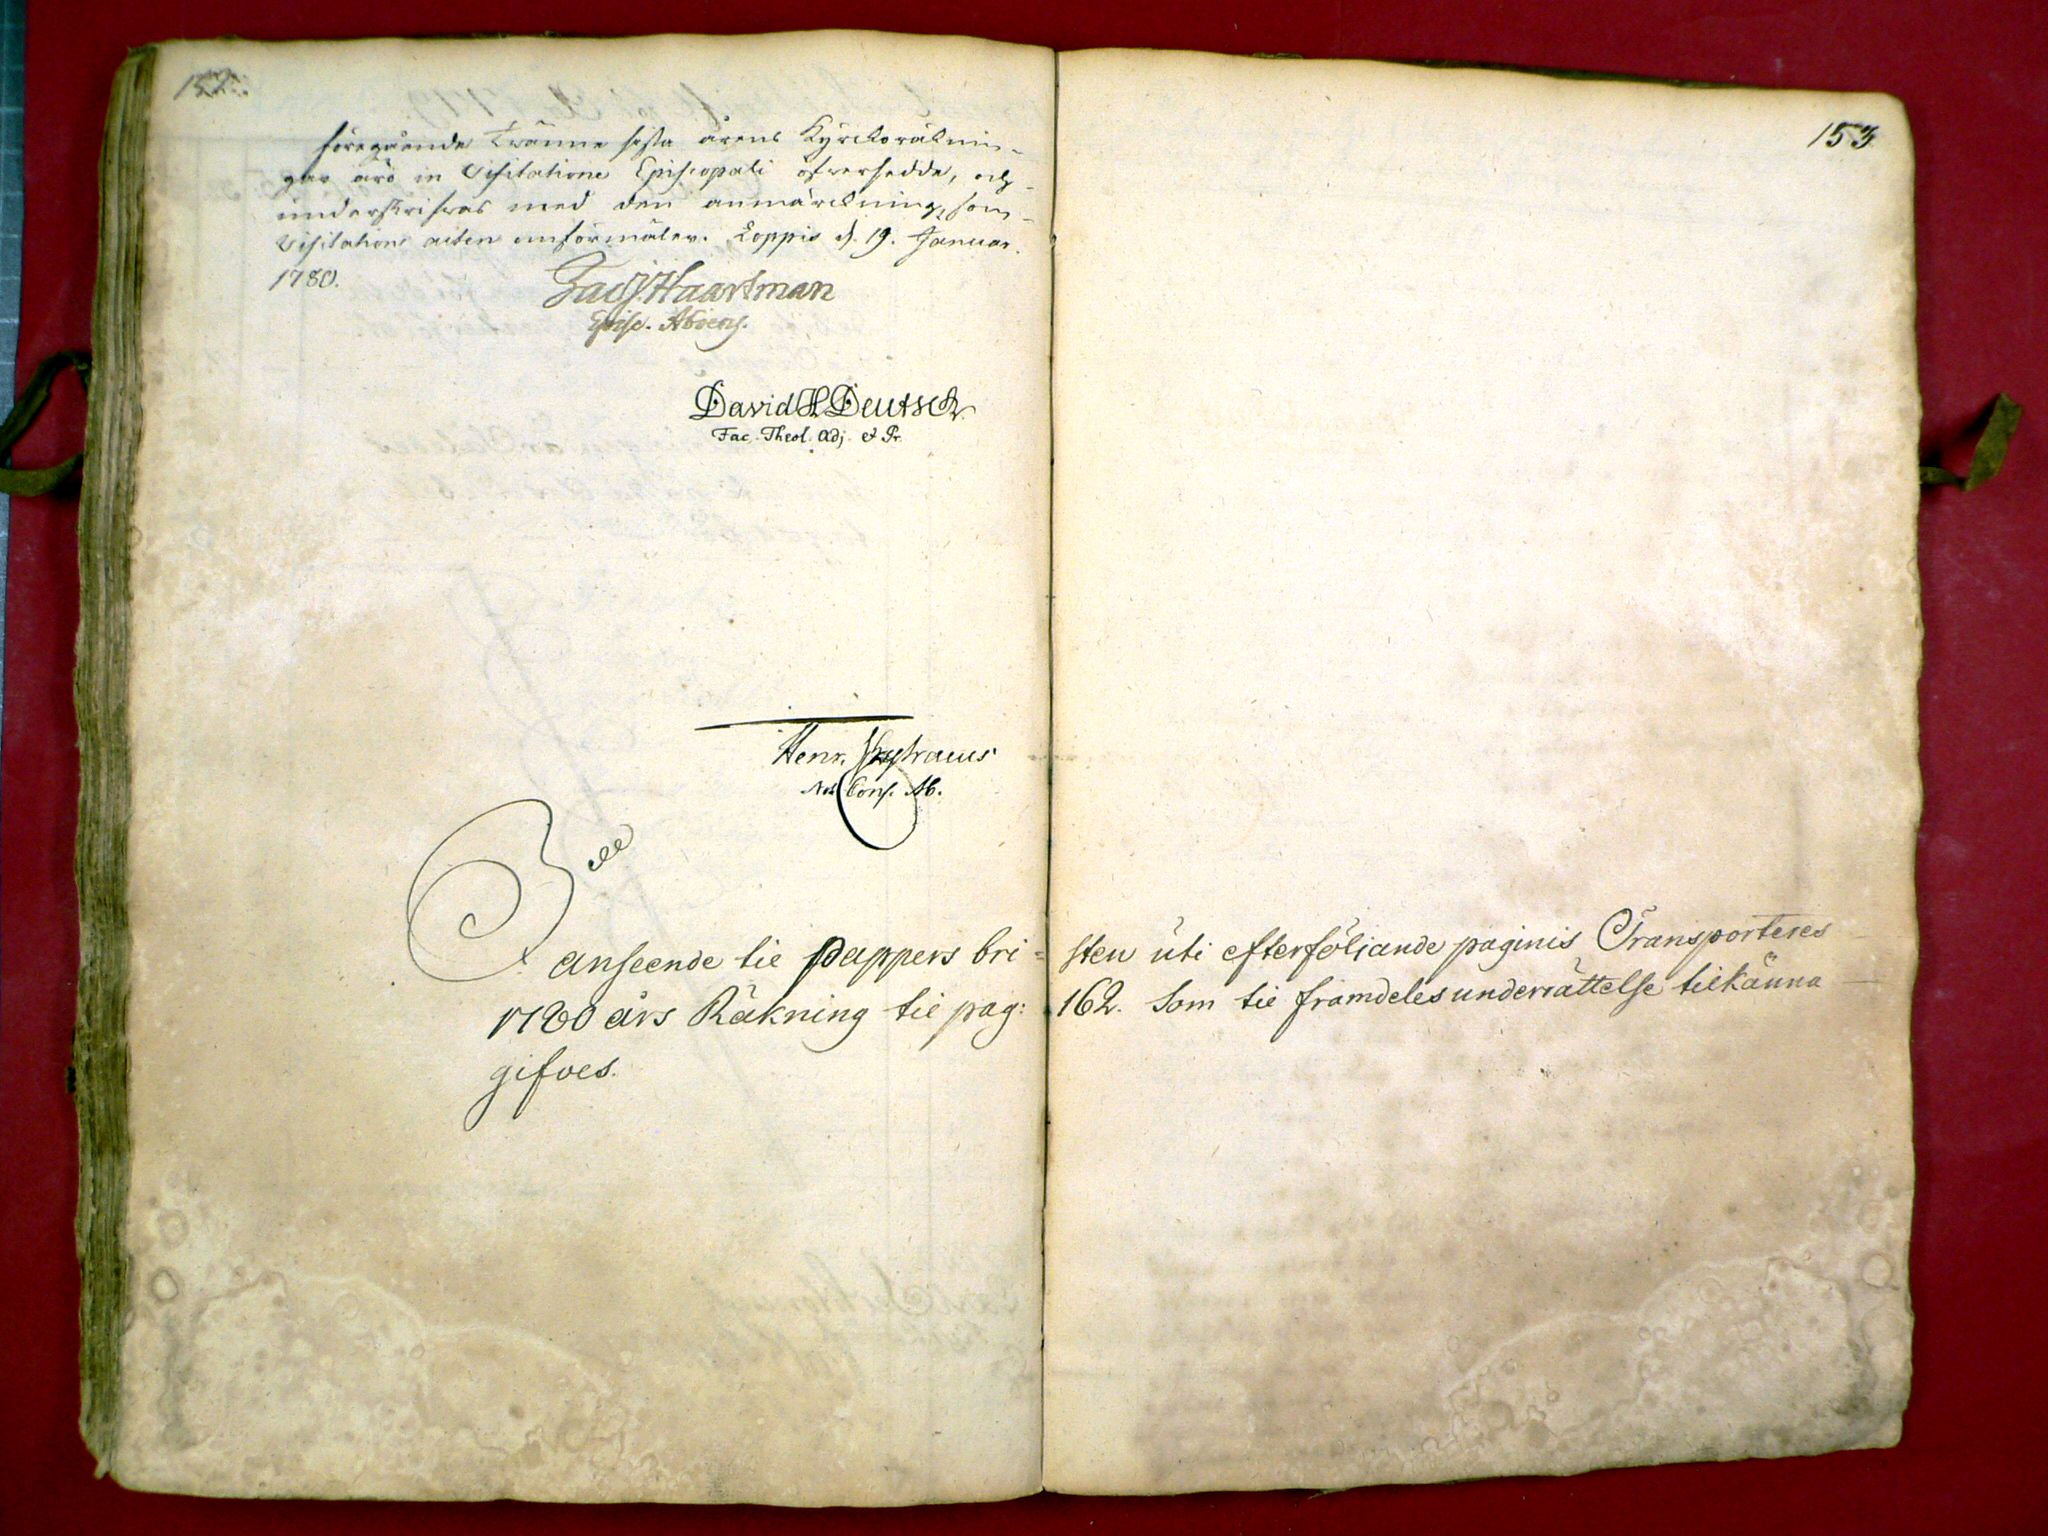 152.
föregående tränne sista årens Kyrckoräknin-
gar äro in Visitatione Episcopali öfversedde, och
underskrifvas med den anmärckning, som
Visitations acten omförmäler. Loppis d. 19. Januar.
1780.
Jac. Haartman
Episc. Aboens.
David H Deutsch
Fac. Theol. Adj. et Pr.
Henr.
Not. Cons. Ab.
153
I anseende till pappers bri-sten uti efterföljande paginis Transporteres
1780 års Räkning till pag: 162. Som till framdeles underrättelse tillkänna
gifves.